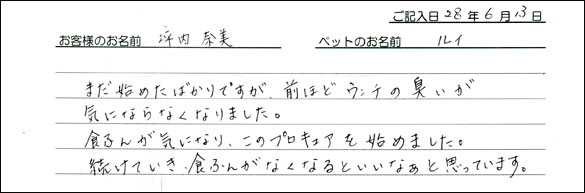 ご記入日 28 年 6 月 13 日
お客様のお名前 坪内 奈美 ペットのお名前 ルイ
まだ始めたばかりですが、前ほどウンチの臭いが
気にならなくなりました。
食ふんが気になり、このプロキュアを始めました。
続けていき、食ふんがなくなるといいなぁと思っています。